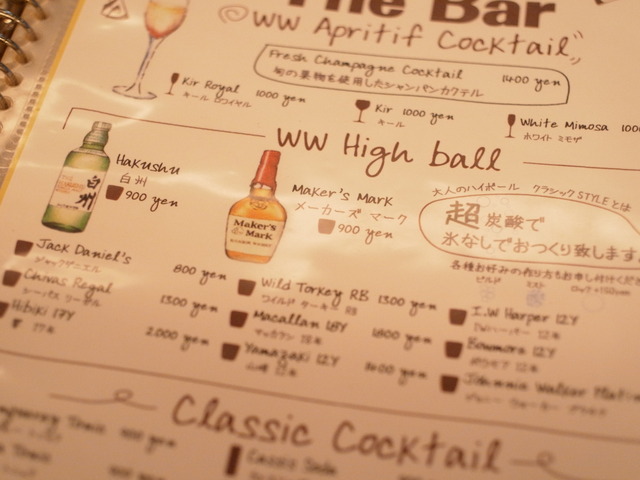 The Bar
WW Apritif Cocktail
Fresh Champagne Cocktail 1400 yen
旬の果物を使用したシャンパンカクテル
Kir Royal 1000 yen
キール ロワイヤル
Kir 1000 yen
キール
White Mimosa
ホワイト ミモザ
WW High ball
Hakushu
白州
900 yen
白州
Maker's Mark
メーカーズ マーク
900 yen
Maker's Mark
大人のハイボール クラシックSTYLEとは
超炭酸で
氷なしでおつくり致します
各種お好みの作り方もお申し付けくだ
Jack Daniel's 800 yen
ジャックダニエル
Chivas Regal 1300 yen
シーバス リーガル
Hibiki 17Y 2000 yen
Wild Torkey RB 1300 yen
ワイルド ターキー RB
Macallan 18Y 1800 yen
マッカラン 18年
Yamazaki 12Y
山崎 12年
I.W Harper 12Y
Bowmore 12Y
Johnnie Walker
Classic Cocktail